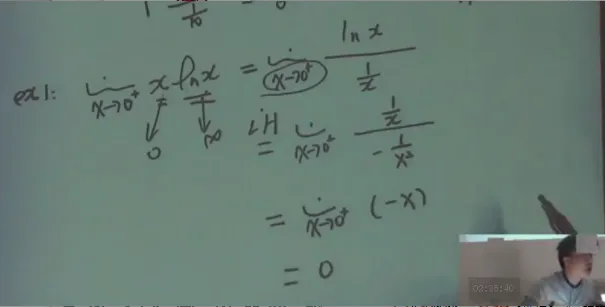 ex1: lim x→0⁺ x ln x = lim x→0⁺ ln x / (1/x)
0 ∞
L'H = lim x→0⁺ (1/x) / (-1/x²)
= lim x→0⁺ (-x)
= 0